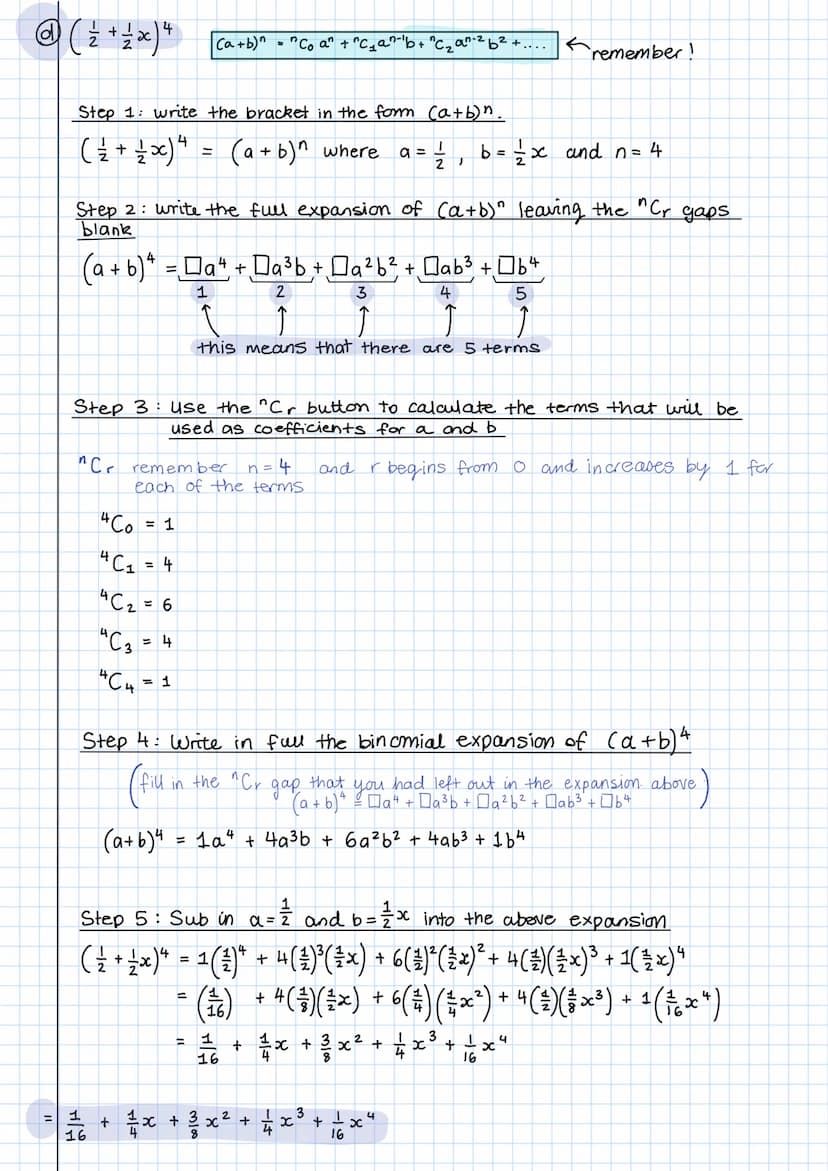 d) (1/2 + 1/2x)⁴ (a+b)ⁿ = ⁿC₀ aⁿ + ⁿC₁aⁿ⁻¹b + ⁿC₂aⁿ⁻²b² + .... ← remember!
Step 1: write the bracket in the form (a+b)ⁿ.
(1/2 + 1/2x)⁴ = (a + b)ⁿ where a = 1/2, b = 1/2x and n = 4
Step 2: write the full expansion of (a+b)ⁿ leaving the ⁿCr gaps
blank
(a + b)⁴ = □a⁴ + □a³b + □a²b² + □ab³ + □b⁴
1 2 3 4 5
this means that there are 5 terms
Step 3: Use the ⁿCr button to calculate the terms that will be
used as coefficients for a and b
ⁿCr remember n = 4 and r begins from 0 and increases by 1 for
each of the terms
⁴C₀ = 1
⁴C₁ = 4
⁴C₂ = 6
⁴C₃ = 4
⁴C₄ = 1
Step 4: Write in full the binomial expansion of (a+b)⁴
(fill in the ⁿCr gap that you had left out in the expansion above
(a + b)⁴ = □a⁴ + □a³b + □a²b² + □ab³ + □b⁴)
(a+b)⁴ = 1a⁴ + 4a³b + 6a²b² + 4ab³ + 1b⁴
Step 5: Sub in a = 1/2 and b = 1/2x into the above expansion
(1/2 + 1/2x)⁴ = 1(1/2)⁴ + 4(1/2)³(1/2x) + 6(1/2)²(1/2x)² + 4(1/2)(1/2x)³ + 1(1/2x)⁴
= (1/16) + 4(1/8)(1/2x) + 6(1/4)(1/4x²) + 4(1/2)(1/8x³) + 1(1/16x⁴)
= 1/16 + 1/4x + 3/8x² + 1/4x³ + 1/16x⁴
= 1/16 + 1/4x + 3/8x² + 1/4x³ + 1/16x⁴